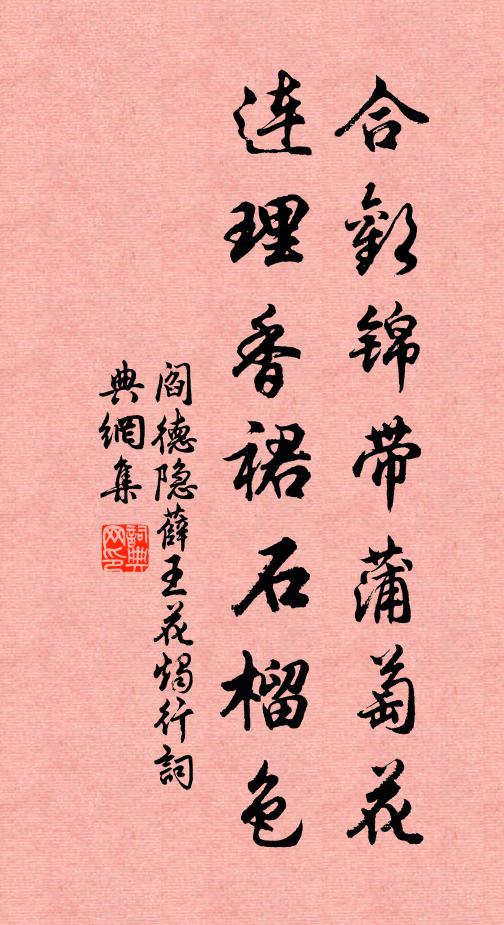 合歡锦带蒲萄花
连理香裙石榴色
阎德隐薛王花烛行詞
典網集
詞典网印